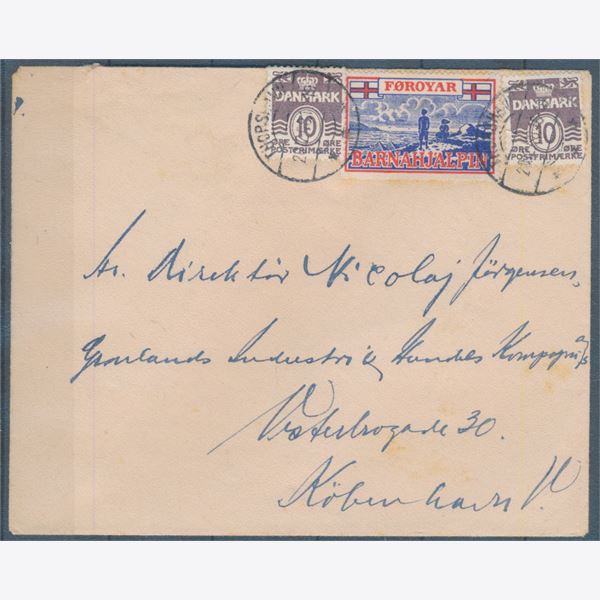 DANMARK
10
ØRE ØRE
POSTFRIMÆRKE
FØROYAR
BARNAHJALPIN
DANMARK
10
ØRE ØRE
POSTFRIMÆRKE
Hr. Direktör Nicolaj Jörgensen,
Grønlands Industri & Handels Kompagni A/S
Vesterbrogade 30.
København V.